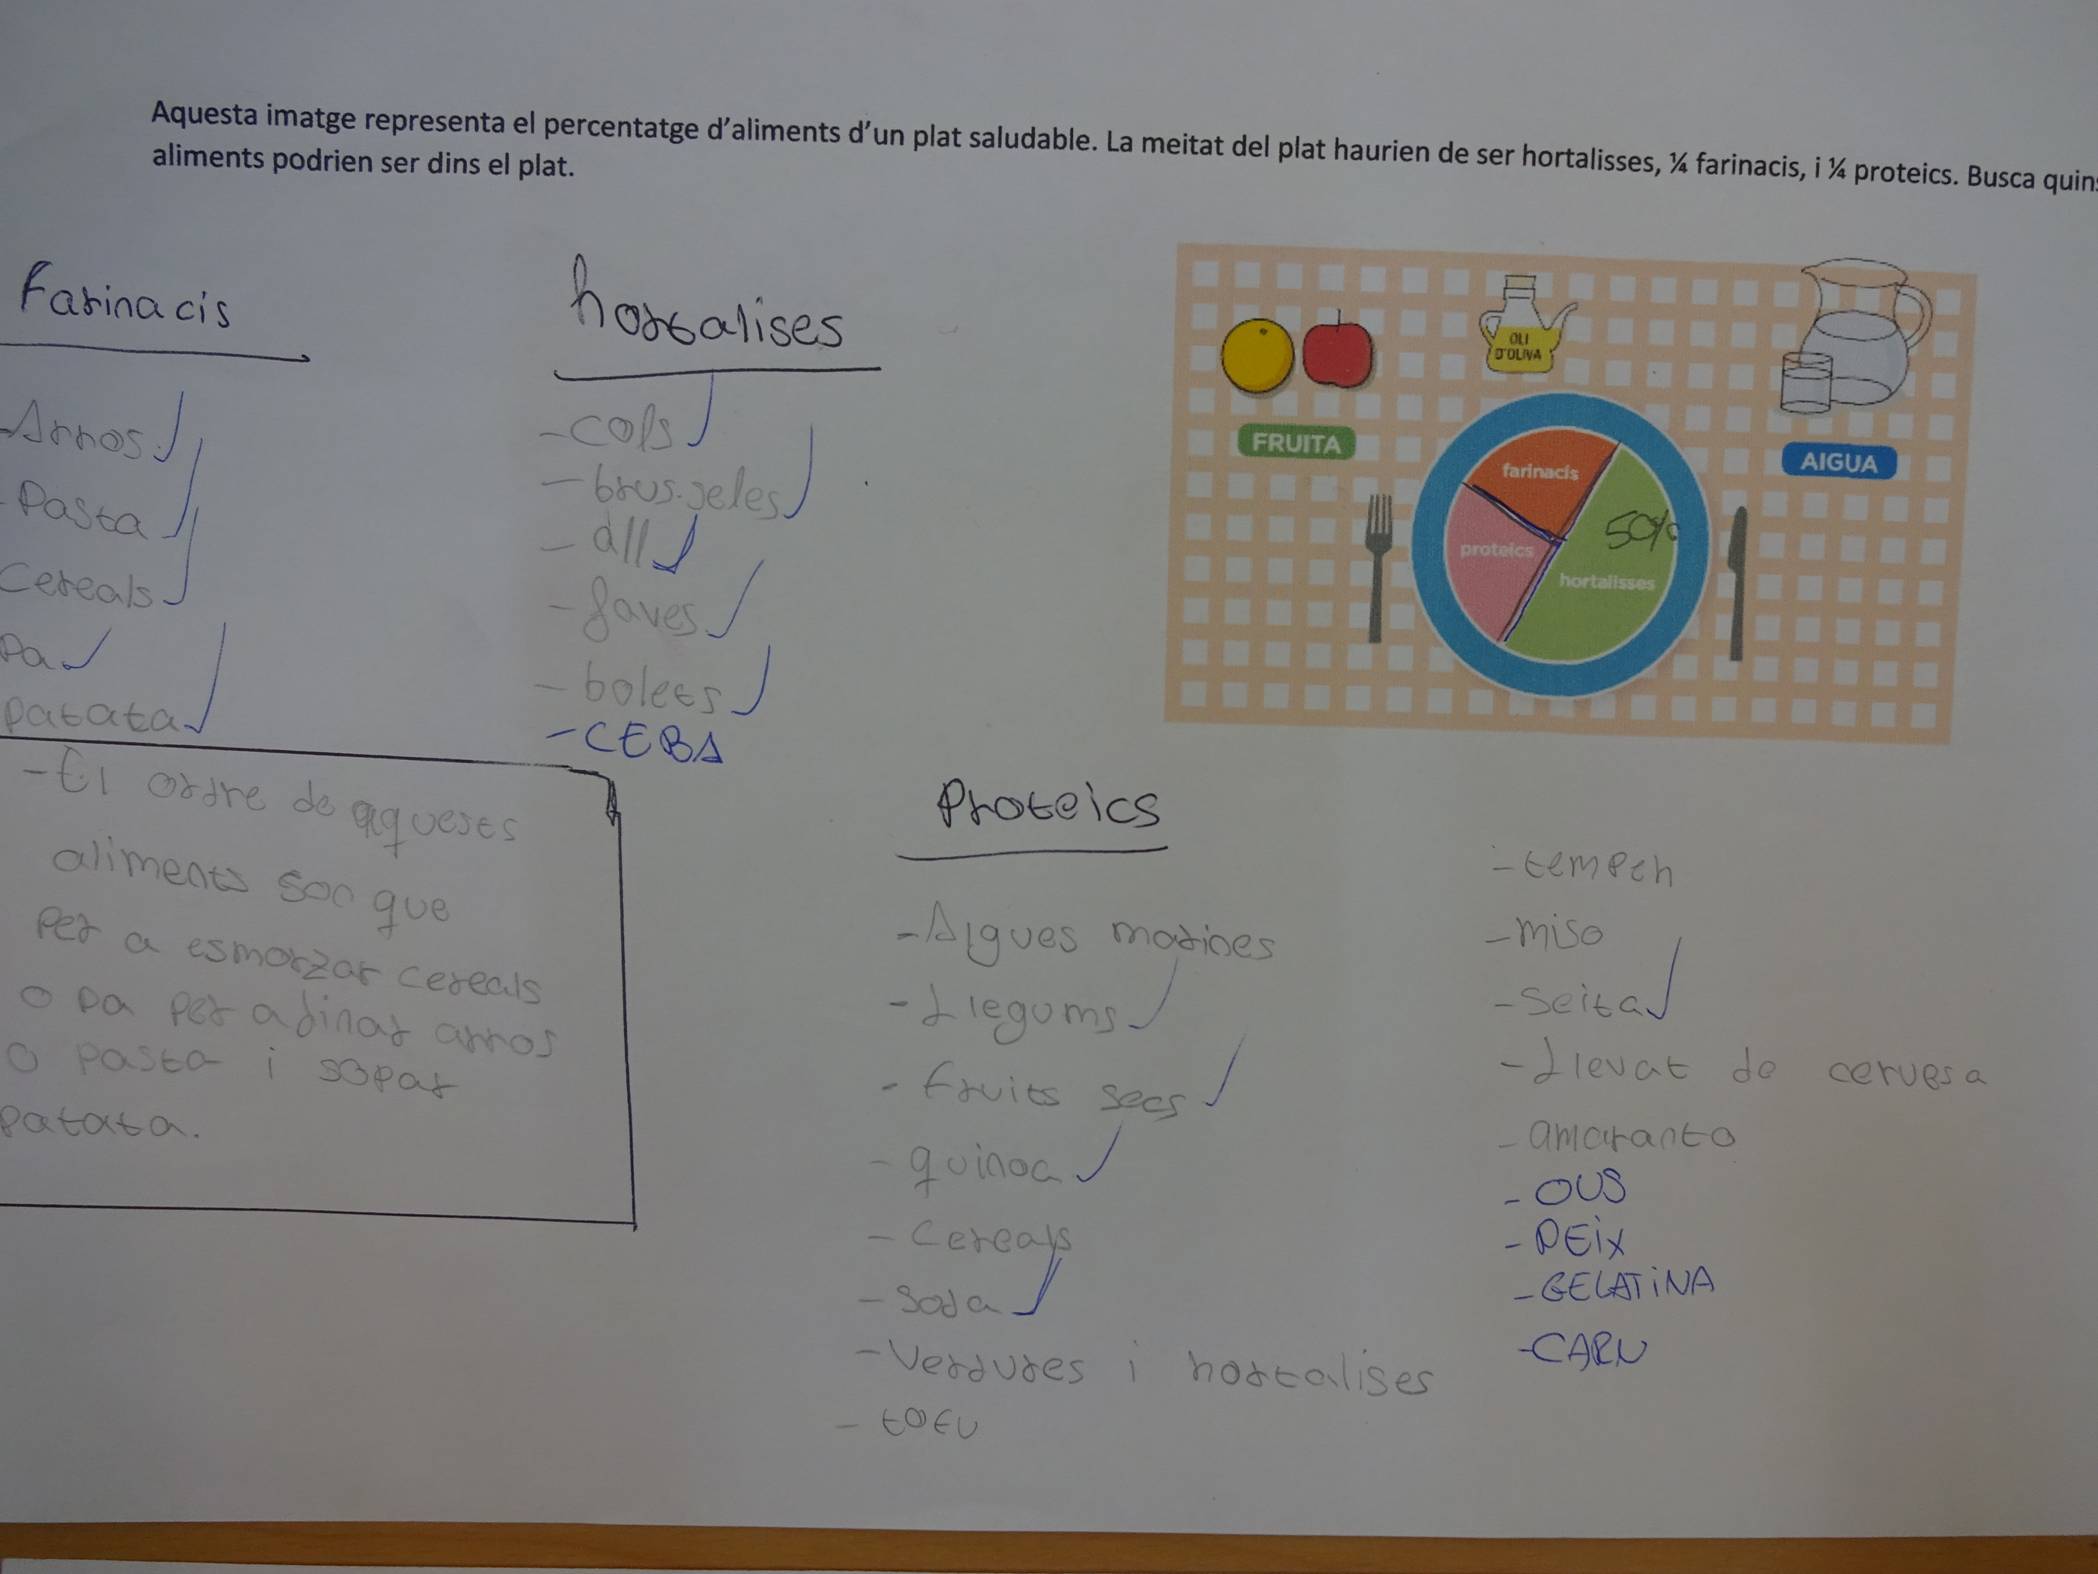 Aquesta imatge representa el percentatge d'aliments d'un plat saludable. La meitat del plat haurien de ser hortalisses, ¼ farinacis, i ¼ proteics. Busca quins
aliments podrien ser dins el plat.
Farinacis
Arros
Pasta
Cereals
Pa
Patata
hortalises
- cols
- brus.seles
- all
- faves
- bolets
- CEBA
FRUITA
OLI
D'OLIVA
AIGUA
farinacis
proteics
50%
hortalisses
- El ordre de aquests
aliments son que
Per a esmorzar cereals
o pa per a dinar arros
o pasta i sopar
patata.
Proteics
- Algues marines
- Llegums
- Fruits secs
- quinoa
- Cereals
- Soda
- Verdures i hortalises
- tofu
- tempeh
- miso
- Seita
- Llevat de cervesa
- amaranto
- OUS
- PEiX
- GELATiNA
- CARN